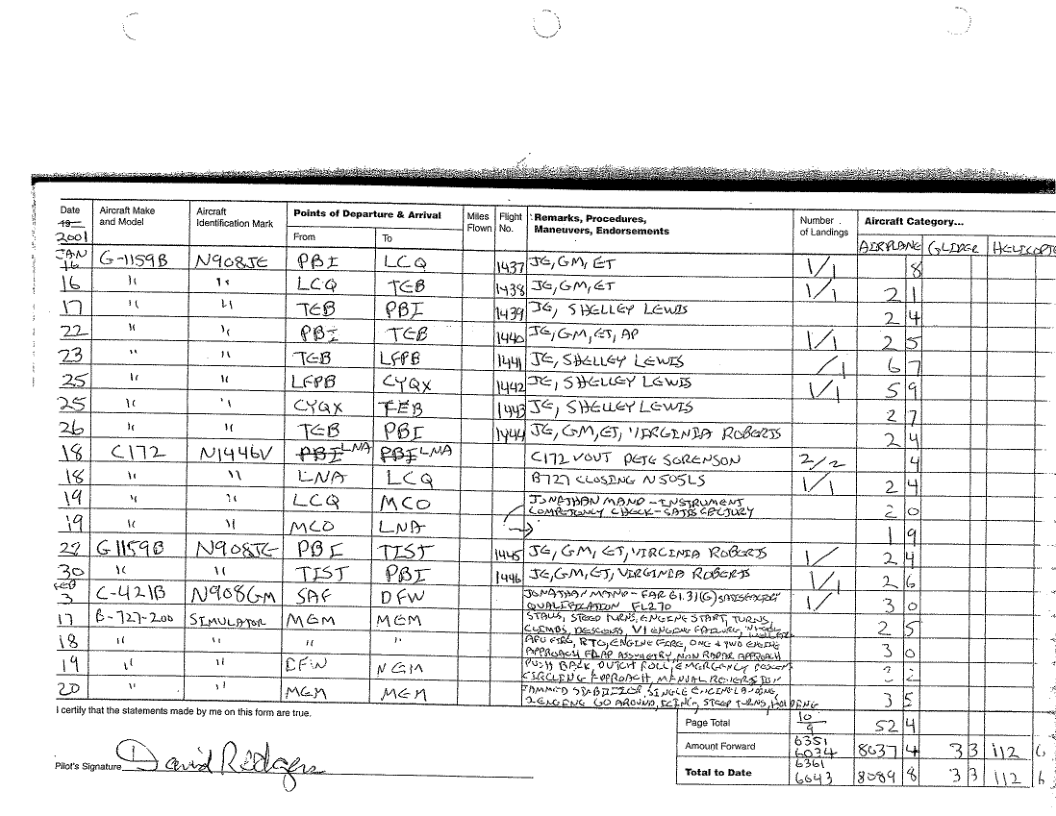 Date 19 2001 Aircraft Make and Model Aircraft Identification Mark Points of Departure & Arrival From To Miles Flown Flight No. Remarks, Procedures, Maneuvers, Endorsements Number of Landings Aircraft Category...
AIRPLANE GLIDER HELICOPTE
JAN 16 G-1159B N908JE PBI LCQ 1437 JE, GM, ET 1/1 8
16 " " LCQ TEB 1438 JE, GM, ET 1/1 2 1
17 " " TEB PBI 1439 JE, SHELLEY LEWIS 2 4
22 " " PBI TEB 1440 JE, GM, ET, AP 1/1 2 5
23 " " TEB LFPB 1441 JE, SHELLEY LEWIS /1 6 7
25 " " LFPB CYQX 1442 JE, SHELLEY LEWIS 1/1 5 9
25 " " CYQX TEB 1443 JE, SHELLEY LEWIS 2 7
26 " " TEB PBI 1444 JE, GM, ET, VIRGINIA ROBERTS 2 4
18 C172 N1446V PBI LNA PBI LNA C172 VOUT PETE SORENSON 2/2 4
18 " LNA LCQ B727 CLOSING N505LS 1/1 2 4
19 " " LCQ MCO JONATHAN MANO - INSTRUMENT COMPETENCY CHECK - SATISFACTORY 2 0
19 " " MCO LNA 1 9
28 G1159B N908JE PBI TIST 1445 JE, GM, ET, VIRGINIA ROBERTS 1/ 2 4
30 " " TIST PBI 1446 JE, GM, ET, VIRGINIA ROBERTS 1/1 2 6
FEB 3 C-421B N908GM SAF DFW JONATHAN MANO - FAR 61.31(G) SATISFACTORY QUALIFICATION FL270 1/ 3 0
17 B-727-200 SIMULATOR MGM MGM STALLS, STEEP TURNS, ENGINE START, TURNS, CLIMBS, DESCENDS, V1 ENGINE FAILURE, 2 5
18 " " " " APU FIRE, RTO, ENGINE FIRE, ONE & TWO ENGINE APPROACH FLAP ASSYMETRY, NON RADAR APPROACH 3 0
19 " " PUSH BACK, DUTCH ROLL, EMERGENCY DESCENT CIRCLING APPROACH, MANUAL REVERSION 2
20 " " MGM MGM JAMMED STABILIZER, SINGLE ENGINE LANDING, 2 ENGINE GO AROUND, STEEP TURNS, HOLDING 3 5
I certify that the statements made by me on this form are true.
Page Total 10 9 52 4
Amount Forward 6351 6034 8037 4 3 3 112 6
Pilot's Signature David Rodgers
Total to Date 6361 6043 8089 8 3 3 112 6